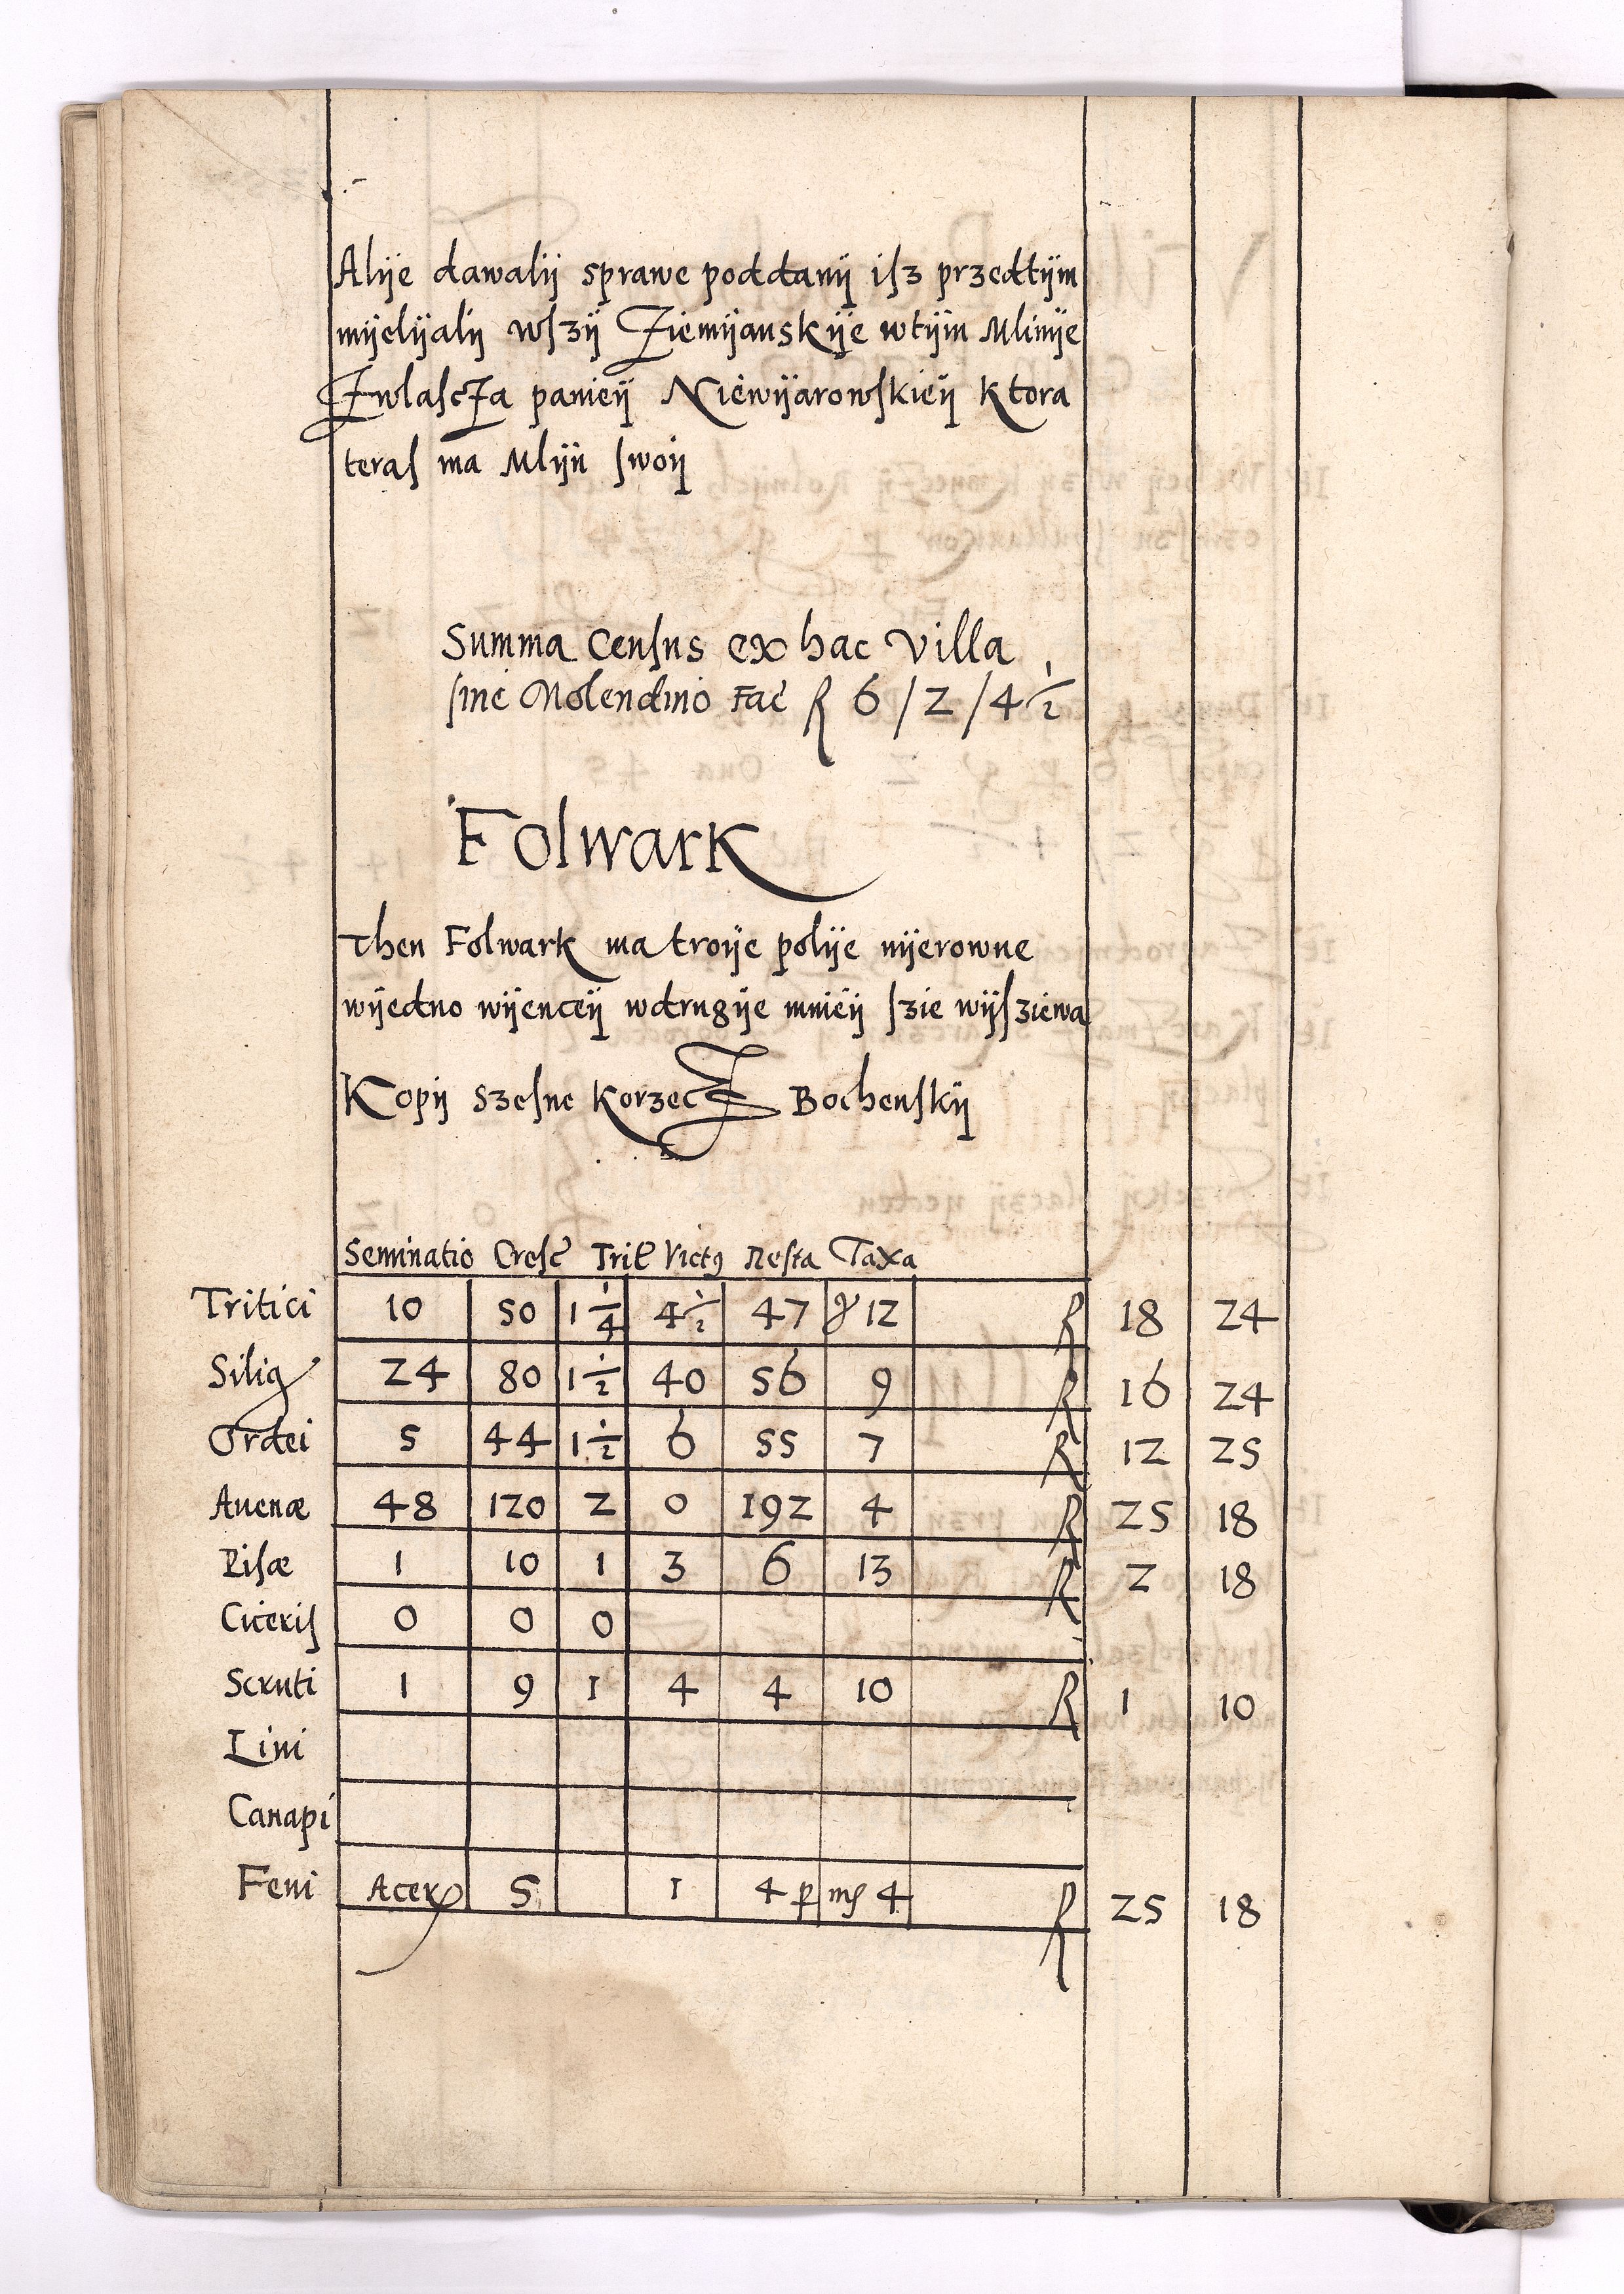 Alije dawalij sprawe poddanij isz przedtijm
mijelijalij wszij Ziemijanskije wtijm Mlinije
ZwlascZa panieij Niewijarowskieij Ktora
teras ma Mlijn swoij
Summa Census ex hac Villa
sine Molendino Fac R 6 / 2 / 4 1/2
Folwark
Then Folwark ma troije polije nijerowne
wijedno wijenceij wdrugije mnieij szie wijsziewa
Kopij szesne KorzecZ Bochenskij
Seminatio Cresc Trit Victus Resta Taxa
Tritici 10 50 1 1/4 4 1/2 47 gr 12 R 18 24
Silig 24 80 1 1/2 40 56 9 R 16 24
Ordei 5 44 1 1/2 6 55 7 R 12 25
Auenæ 48 120 2 0 192 4 R 25 18
Pisæ 1 10 1 3 6 13 R 2 18
Ciceris 0 0 0
Scruti 1 9 1 4 4 10 R 1 10
Lini
Canapi
Feni Acer 5 1 4 p ms 4 R 25 18